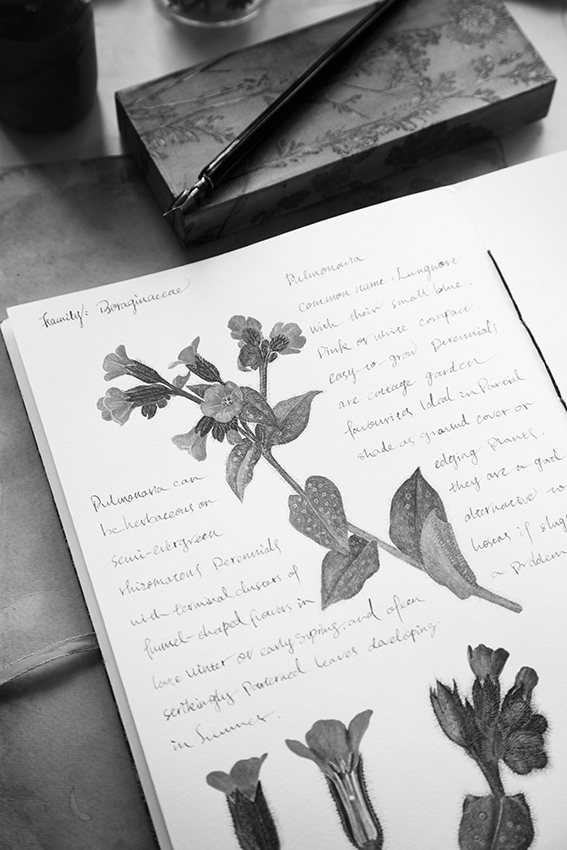 Family: Boraginaceae
Pulmonaria
common name. Lungwort
with their small blue.
Pink or white compact.
easy-to-grow perennials
are cottage garden
favourites Ideal in Partial
shade as ground cover or
edging plants.
they are a good
alternative to
hostas if slug
a problem
Pulmonaria can
be herbaceous or
semi-evergreen
rhizomatous Perennials
with terminal clusters of
funnel-shaped flowers in
late winter or early spring and often
strikingly Patterned leaves developing
in Summer.